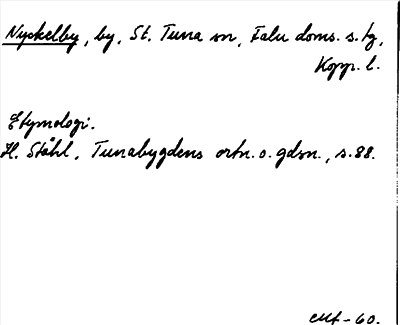 Nyckelby, by, St. Tuna sn, Falu doms. s. tg,
Kopp. l.
Etymologi.
H. Ståhl, Tunabygdens ortn. o. gdsn., s. 88.
-60.